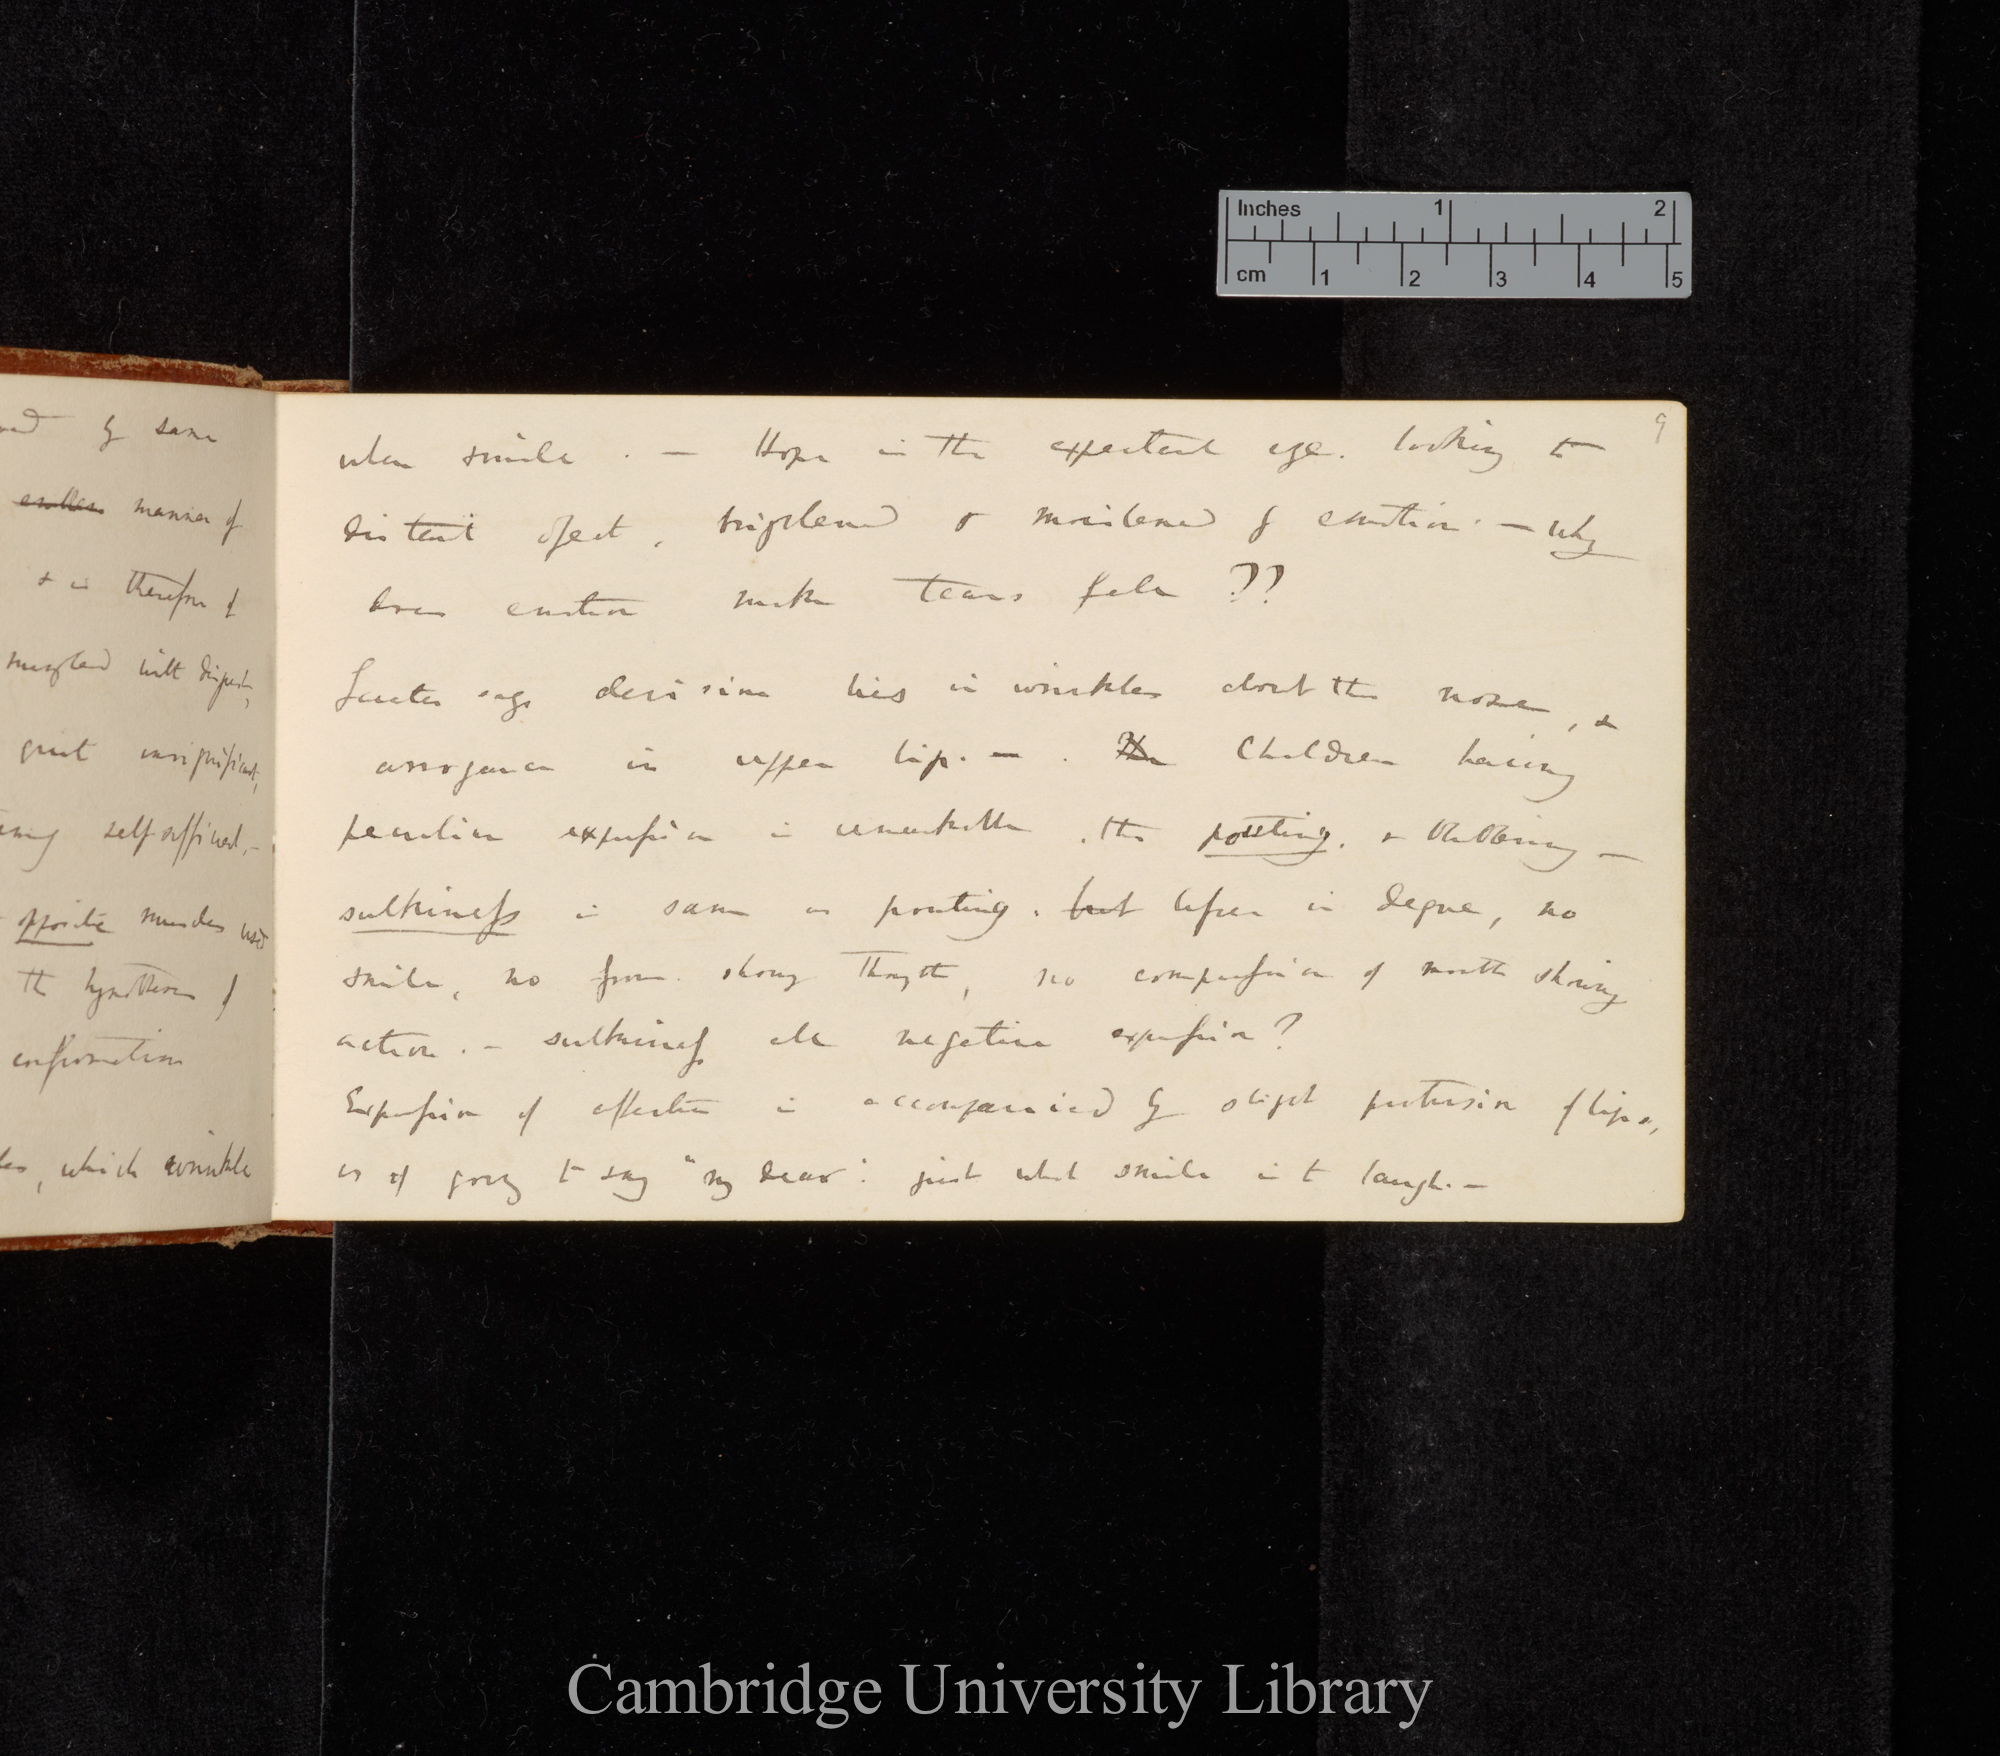 Inches 1 2
cm 1 2 3 4 5
by same
manner of
& is therefore of
mingled with
great insignificant,
self sufficient,—
opposite muscles used
the hypothesis of
confirmation
, which wrinkle
9
when smile. — Hope is the expectant eye. looking to
distant object, brightened & moistened by emotion. — why
does emotion make tears fall ??
says derision lies in wrinkles about the nose, &
arrogance in upper lip. — . The Children having
peculiar expression is remarkable. the pouting. & blubbering —
sulkiness is same as pouting. but lesser in degree, no
smile, no frown. showy thought, no compression of mouth showing
action. — sulkiness all negative expression?
Expression of affection is accompanied by slight protrusion of lips,
as if going to say "my dear": just what smile is to laugh. —
Cambridge University Library